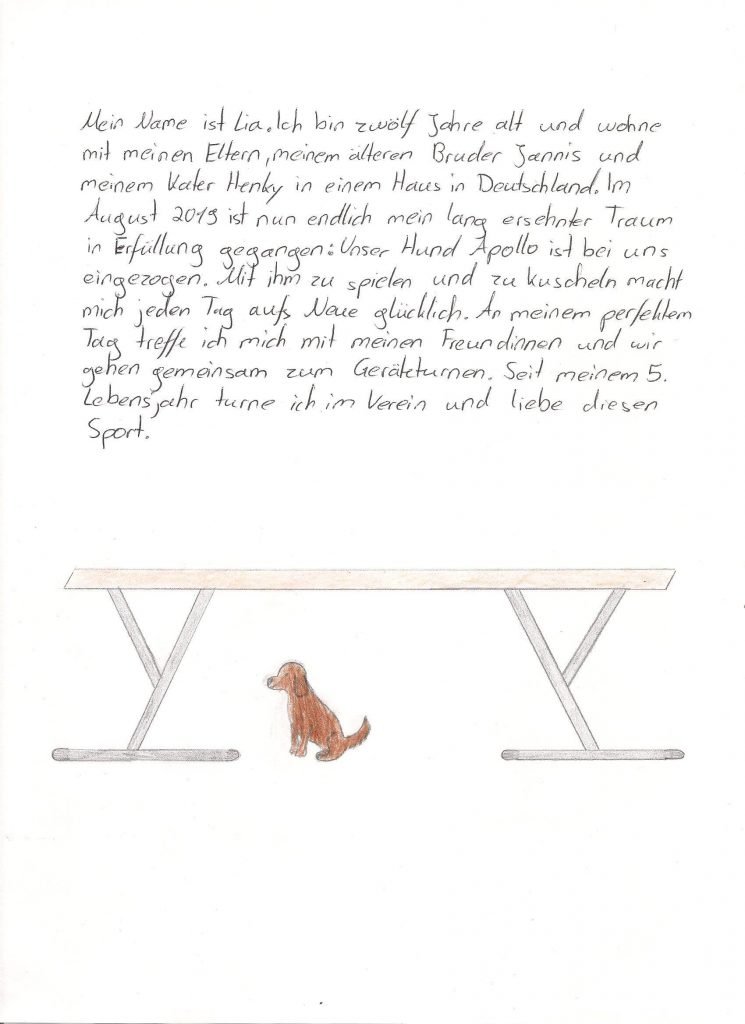 Mein Name ist Lia. Ich bin zwölf Jahre alt und wohne
mit meinen Eltern, meinem älteren Bruder Jannis und
meinem Kater Henky in einem Haus in Deutschland. Im
August 2019 ist nun endlich mein lang ersehnter Traum
in Erfüllung gegangen: Unser Hund Apollo ist bei uns
eingezogen. Mit ihm zu spielen und zu kuscheln macht
mich jeden Tag aufs Neue glücklich. An meinem perfektem
Tag treffe ich mich mit meinen Freundinnen und wir
gehen gemeinsam zum Geräteturnen. Seit meinem 5.
Lebensjahr turne ich im Verein und liebe diesen
Sport.